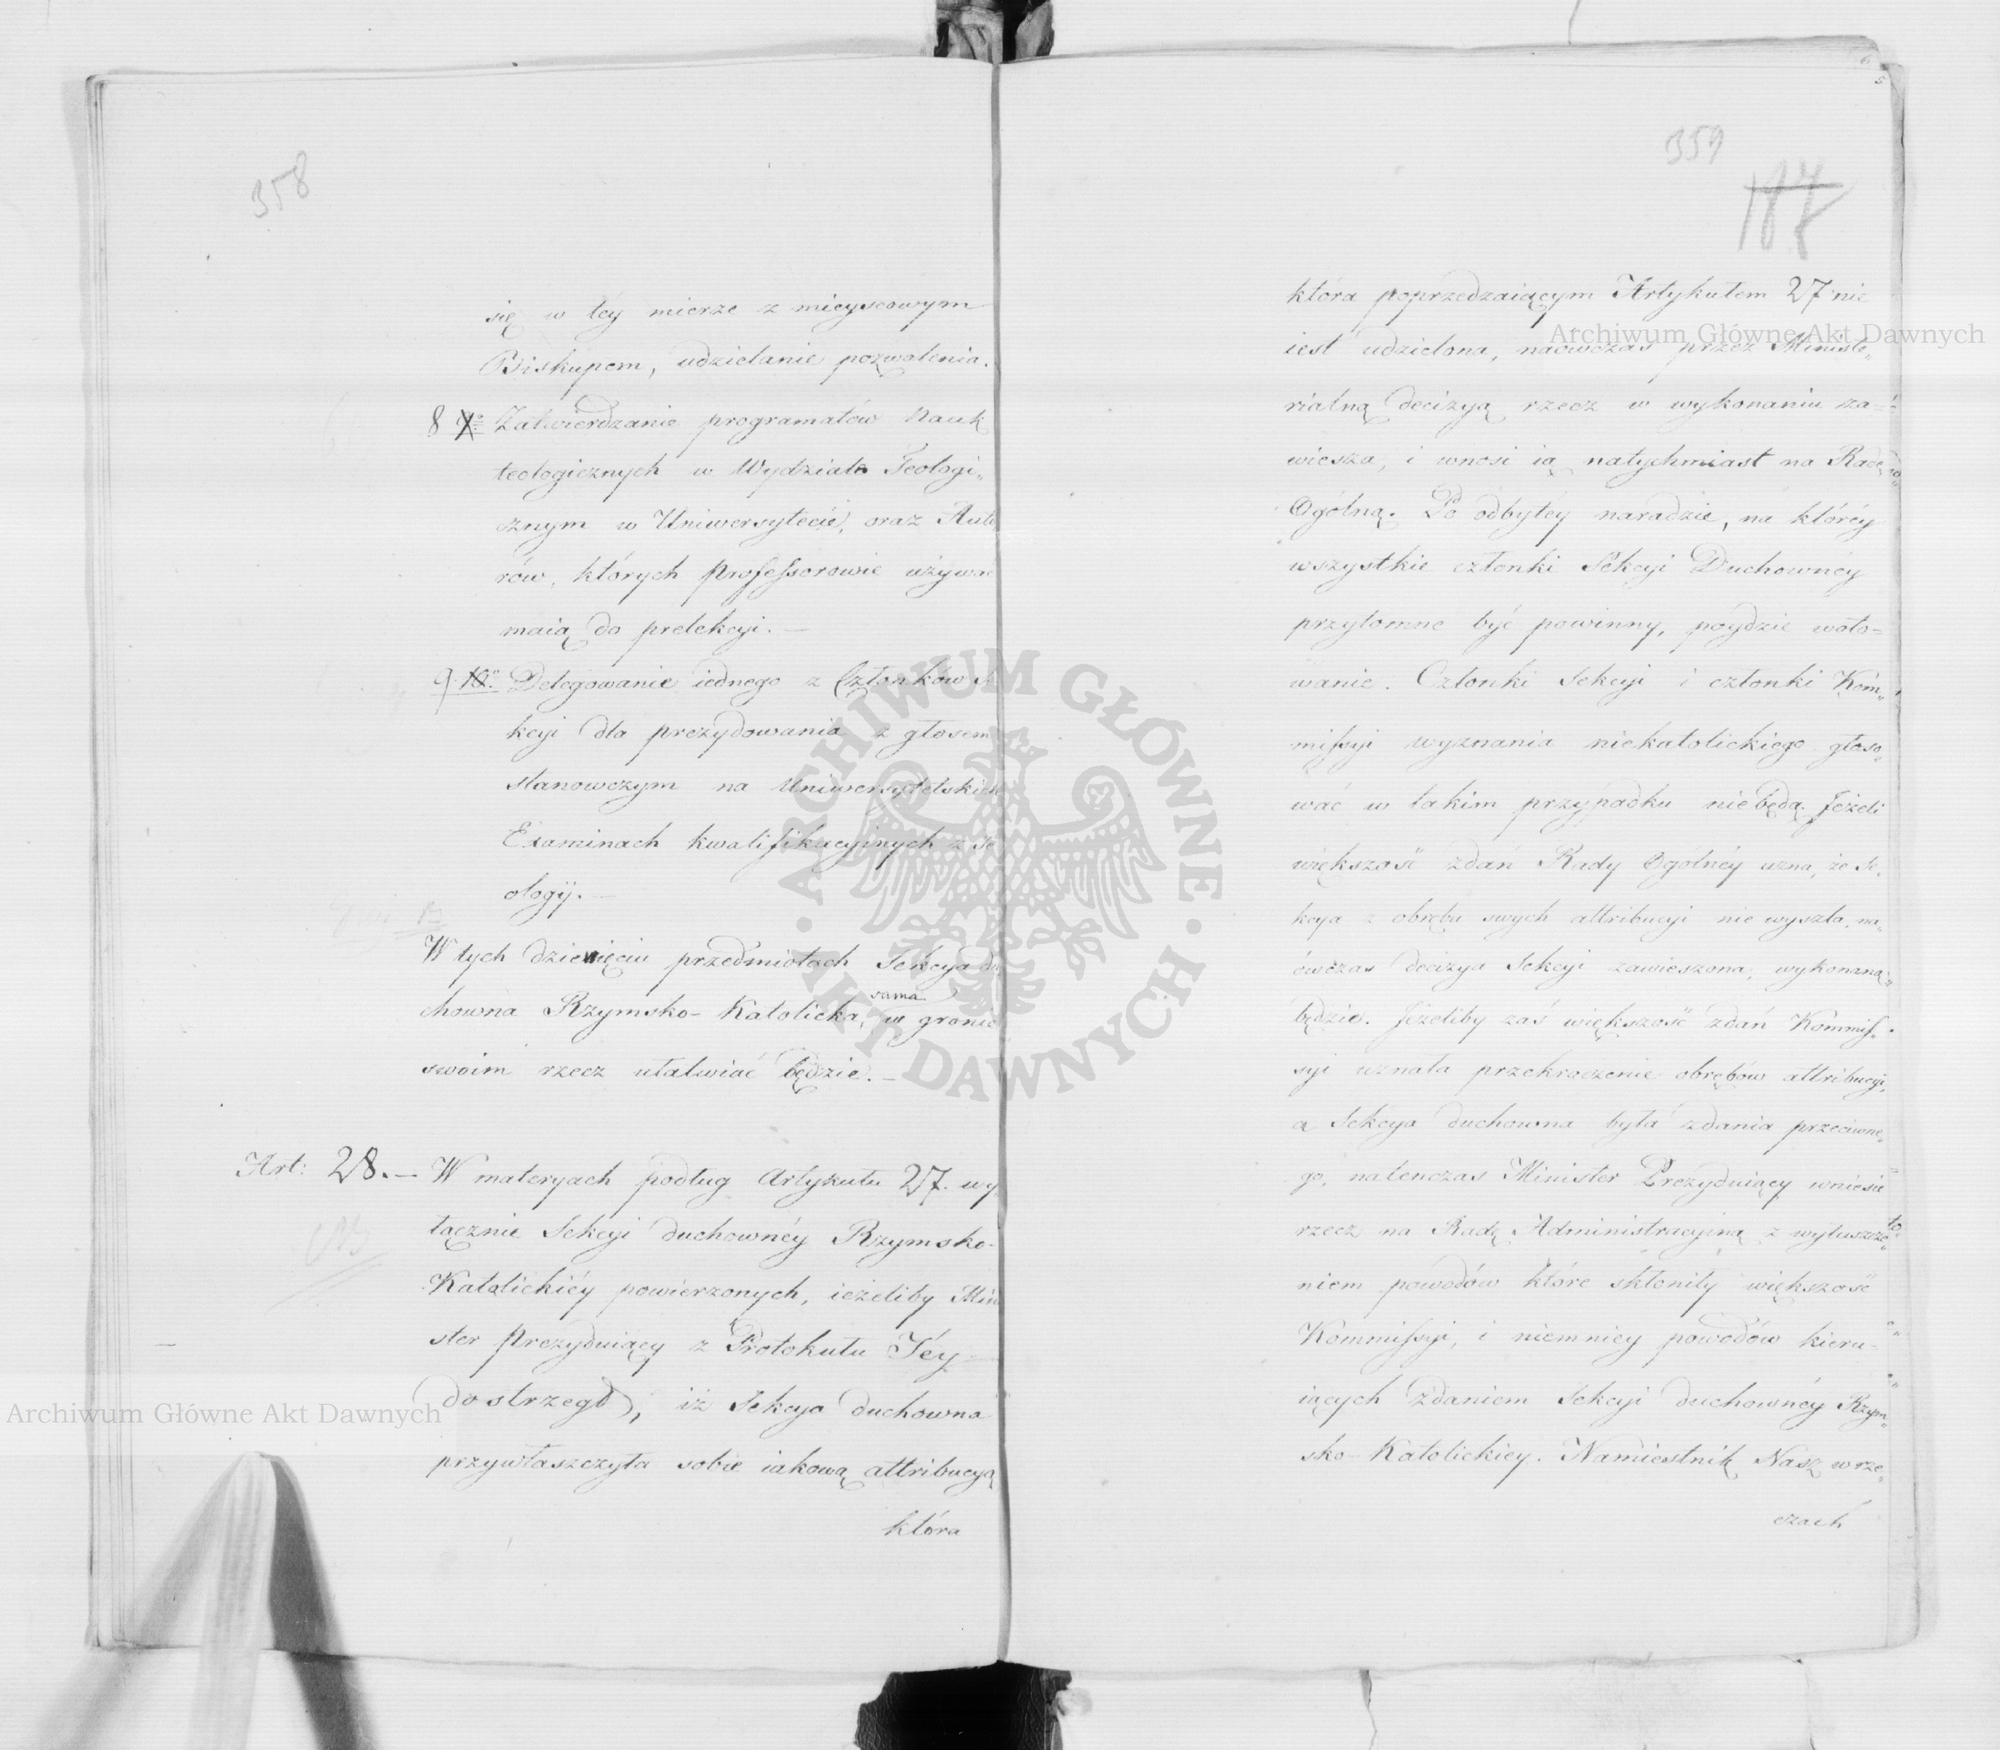 358
się w téy mierze z mieyscowym
Biskupem, udzielanie pozwolenia.
8 Zatwierdzanie programatów Nauk
teologicznych w Wydziale Teologi„
cznym w Uniwersytecie, oraz Auto
rów, których Professorowie używać
maią do prelekcyi. —
9. 10º Delegowanie iednego z Członków Se
kcyi dla prezydowania z głosem
stanowczym na Uniwersytetskich
Examinach kwalifikacyjnych z Te
ologij. —
W tych dziewięciu przedmiotach Sekcya du
chowna Rzymsko-Katolicka, sama w gronie
swoim rzecz ułatwiać będzie. —
Art: 28. — W materyach podług Artykułu 27. wy
łącznie Sekcyi duchownéy Rzymsko-
Katolickiéy powierzonych, ieżeliby Mini
ster Prezyduiący z Protokułu Téy
dostrzegł, iż Sekcya duchowna
przywłaszczyła sobie iakową attribucyą
która
359
187
która poprzedzaiącym Artykułem 27 nie
iest udzielona, naówczas przez Ministe„
rialną decizyą rzecz w wykonaniu za=
wiesza, i wnosi ią natychmiast na Radę
Ogólną. Po odbytéy naradzie, na któréy
wszystkie członki Sekcyi Duchownéy
przytomne być powinny, póydzie woto=
wanie. Członki Sekcyi i członki Kom„
missyi wyznania niekatolickiego głoso„
wać w takim przypadku niebędą. Jeżeli
większość zdań Rady Ogólnéy uzna, że Se„
kcya z obrębu swych attribucyi nie wyszła, na„
ówczas decizya Sekcyi zawieszona, wykonaną
będzie. Jeżeliby zaś większość zdań Kommis„
syi uznała przekroczenie obrębów attribucyi,
a Sekcya duchowna była zdania przeciwne„
go, natenczas Minister Prezyduiący wniesie
rzecz na Radę Administracyiną z wyłuszcze„
niem powodów które skłoniły większość
Kommissyi, i niemniey powodów kieru-
iących zdaniem Sekcyi duchownéy Rzym„
sko-Katolickiey. Namiestnik Nasz w rze„
czach
Archiwum Główne Akt Dawnych
Archiwum Główne Akt Dawnych
ARCHIWUM GŁÓWNE · AKT DAWNYCH ·